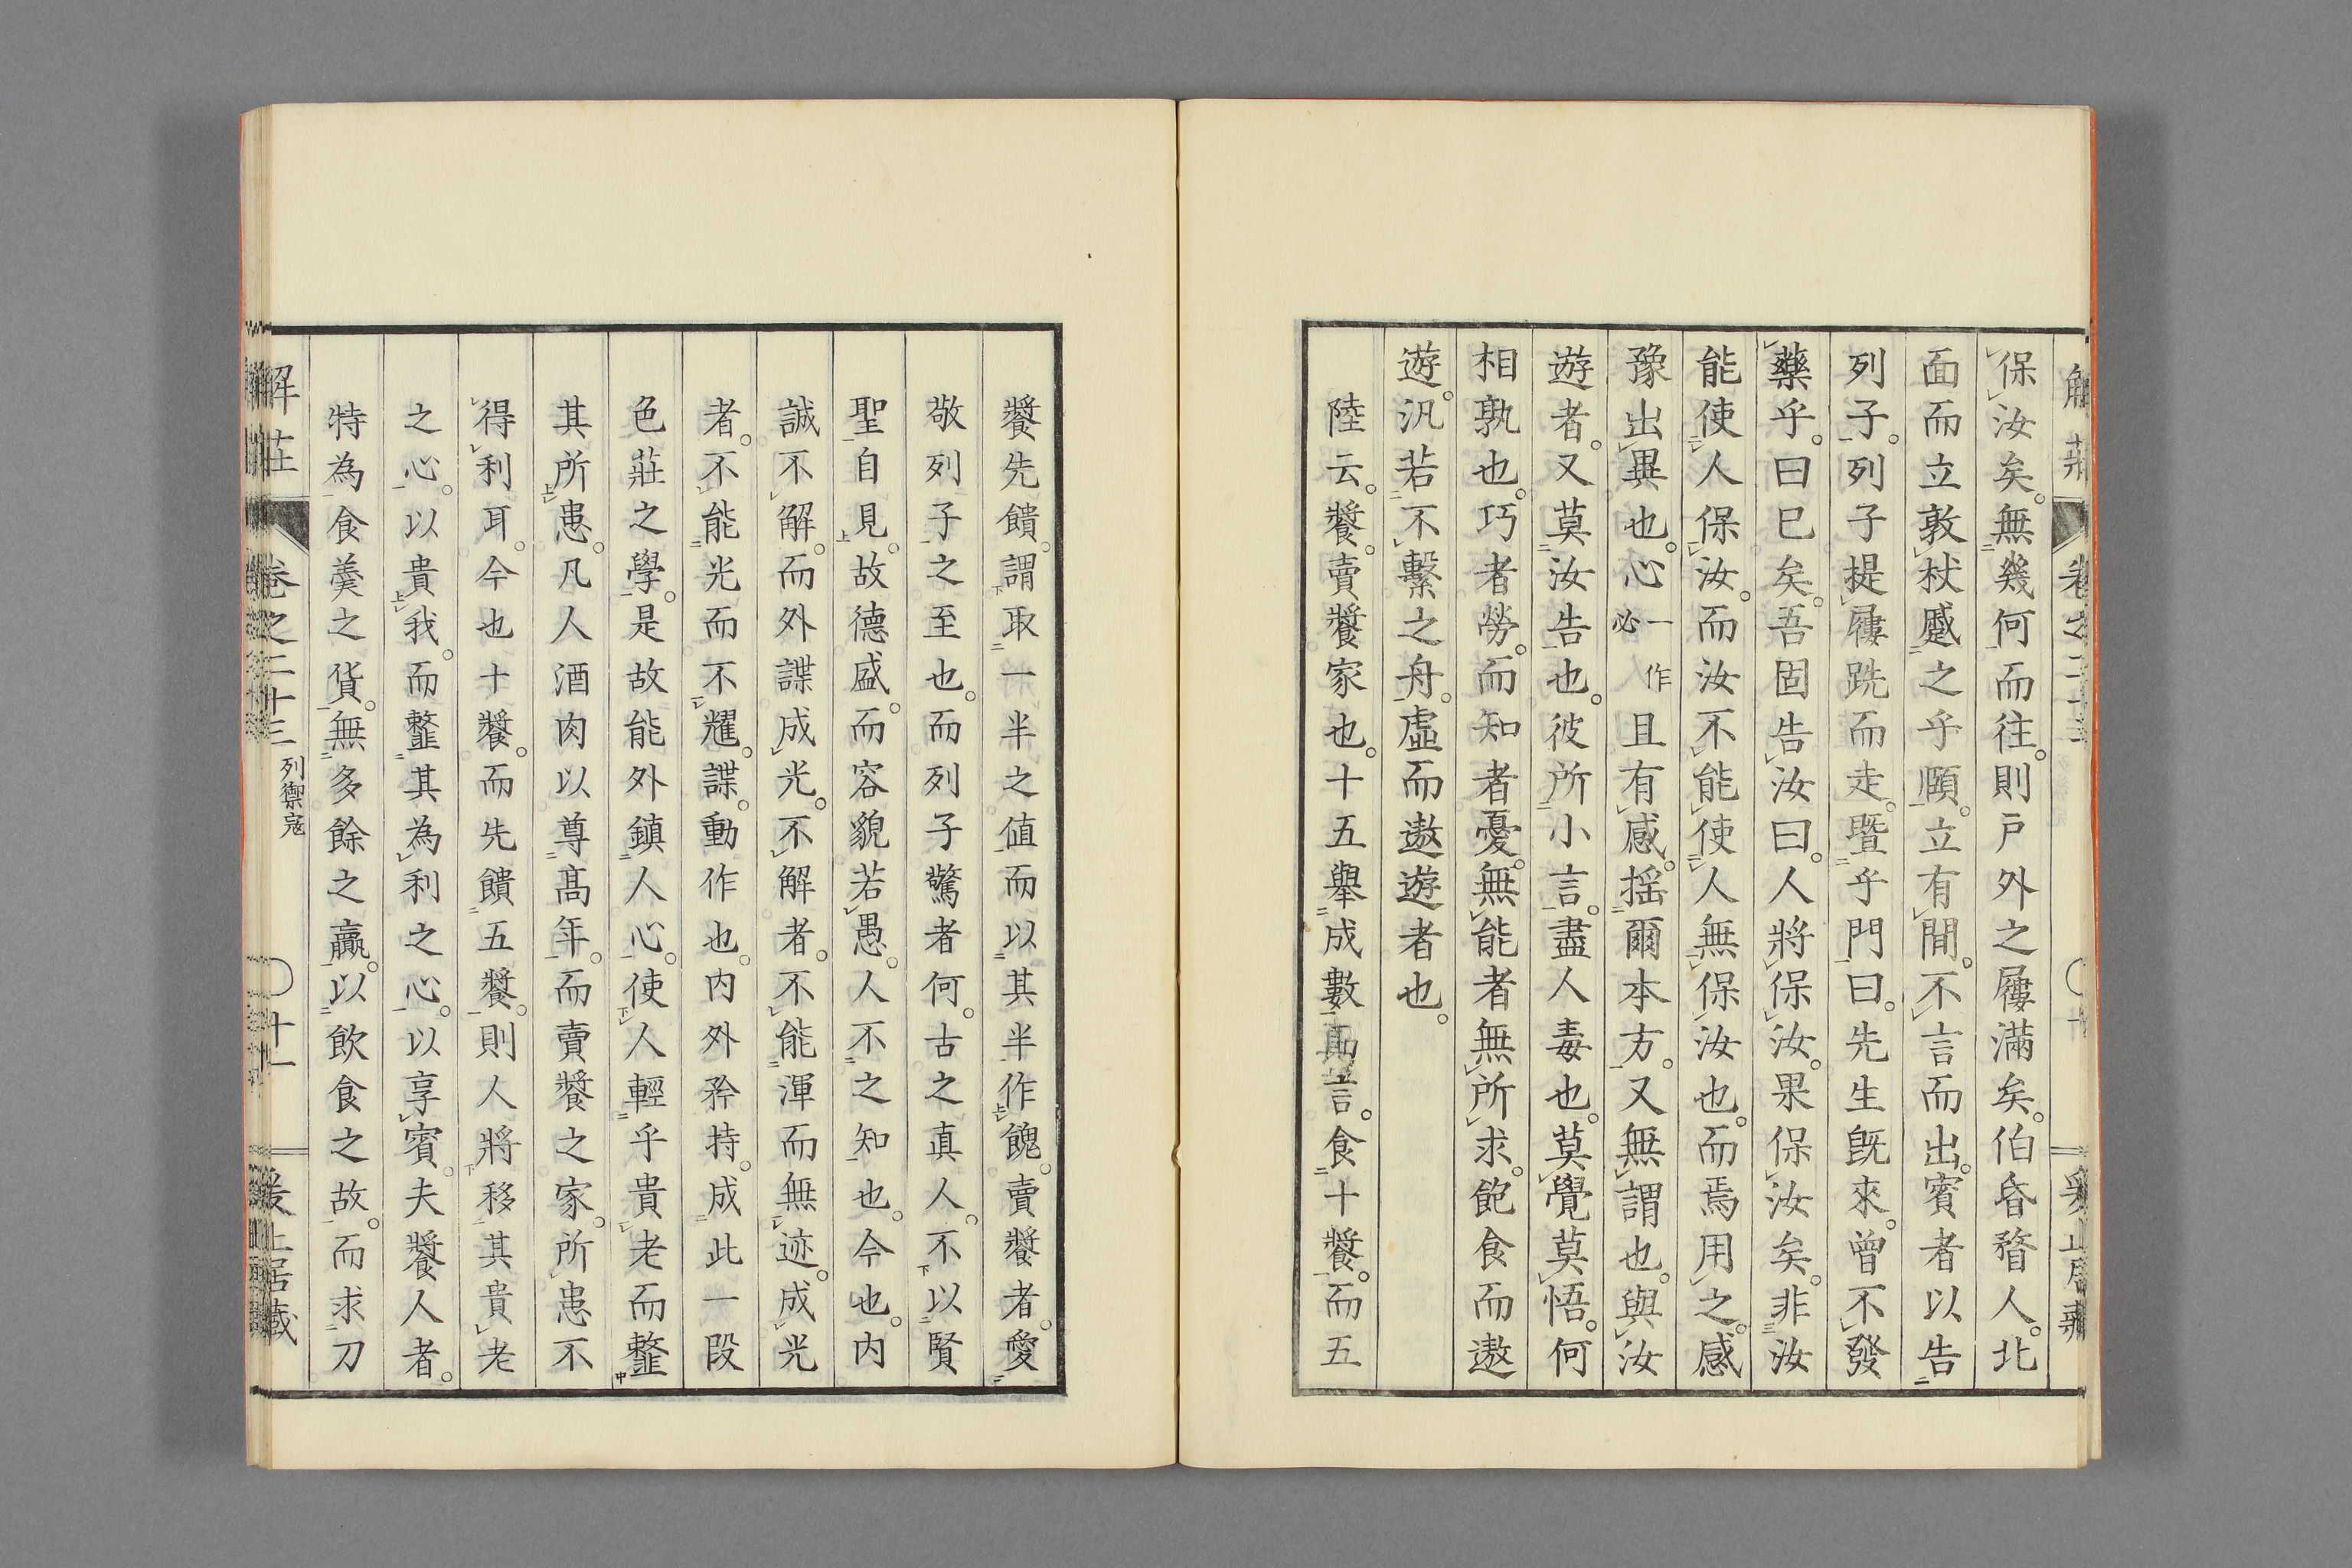 保汝矣。無幾何而往。則戸外之屨滿矣。伯昏瞀人。北
面而立敦杖蹙之乎頤。立有間。不言而出。賓者以告
列子。列子提屨跣而走。暨乎門曰。先生既來。曾不發
藥乎。曰已矣。吾固告汝曰。人將保汝。果保汝矣。非汝
能使人保汝。而汝不能使人無保汝也。而焉用之。感
豫出異也。心一作必且有感。搖爾本方。又無謂也。與汝
遊者。又莫汝告也。彼所小言。盡人毒也。莫覺莫悟。何
相孰也。巧者勞。而知者憂。無能者無所求。飽食而遨
遊。汎若不繫之舟。虛而遨遊者也。
陸云。饕。賣饕家也。十五舉成數而言。食十饕。而五
饕先饋。謂取一半之值。而以其半作餽。賣饕者。愛
敬列子之至也。而列子驚者何。古之真人。不以賢
聖自見。故德盛。而容貌若愚。人不之知也。今也。内
誠不解。而外諜成光。不解者。不能渾而無迹。成光
者。不能光而不耀。諜。動作也。内外矜持。成此一段
色莊之學。是故能外鎮人心。使人輕乎貴老而𩐎
其所患。凡人酒肉以尊高年。而賣饕之家。所患不
得利耳。今也十饕。而先饋五饕。則人將移其貴老
之心。以貴我。而𩐎其為利之心。以享賓。夫饕人者。
特為食羹之貨。無多餘之贏。以飲食之故。而求刀
解莊 卷之二十三 列禦寇 〇十一